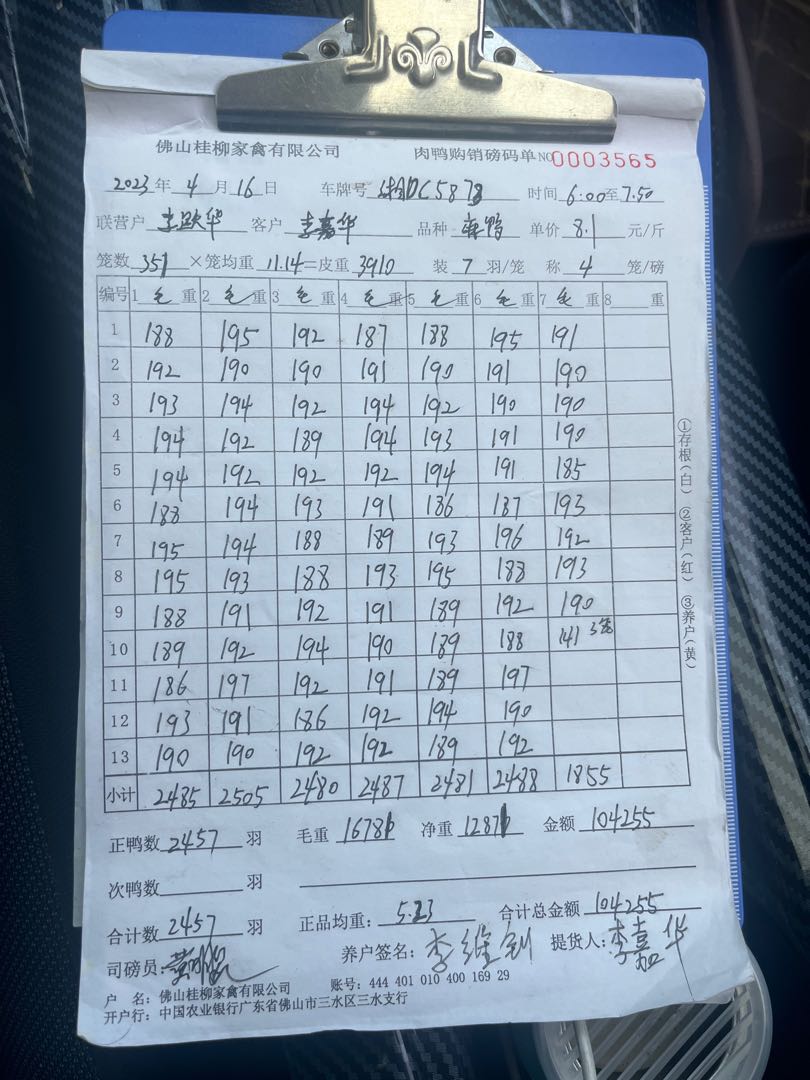 佛山桂柳家禽有限公司 肉鸭购销磅码单 NO 0003565
2023 年 4 月 16 日 车牌号 DC5878 时间 6:00 至 7:50
联营户 李跃华 客户 李嘉华 品种 麻鸭 单价 8.1 元/斤
笼数 351 ×笼均重 11.14 =皮重 3910 装 7 羽/笼 称 4 笼/磅
编号 1 毛 重 2 毛 重 3 毛 重 4 毛 重 5 毛 重 6 毛 重 7 毛 重 8 重
1 188 195 192 187 188 195 191
2 192 190 190 191 190 191 190
3 193 194 192 194 192 190 190
4 194 192 189 194 193 191 190
5 194 192 192 192 194 191 185
6 188 194 193 191 186 187 193
7 195 194 188 189 193 196 192
8 195 193 188 193 195 188 193
9 188 191 192 191 189 192 190
10 189 192 194 190 189 188 141 3笼
11 186 197 192 191 189 197
12 193 191 186 192 194 190
13 190 190 192 192 189 192
小计 2485 2505 2480 2487 2481 2488 1855
①存根(白) ②客户(红) ③养户(黄)
正鸭数 2457 羽 毛重 16781 净重 12871 金额 104255
次鸭数 羽
合计数 2457 羽 正品均重: 5.23 合计总金额 104255
司磅员: 养户签名: 李维钊 提货人: 李嘉华
户 名: 佛山桂柳家禽有限公司 账号: 444 401 010 400 169 29
开户行: 中国农业银行广东省佛山市三水区三水支行